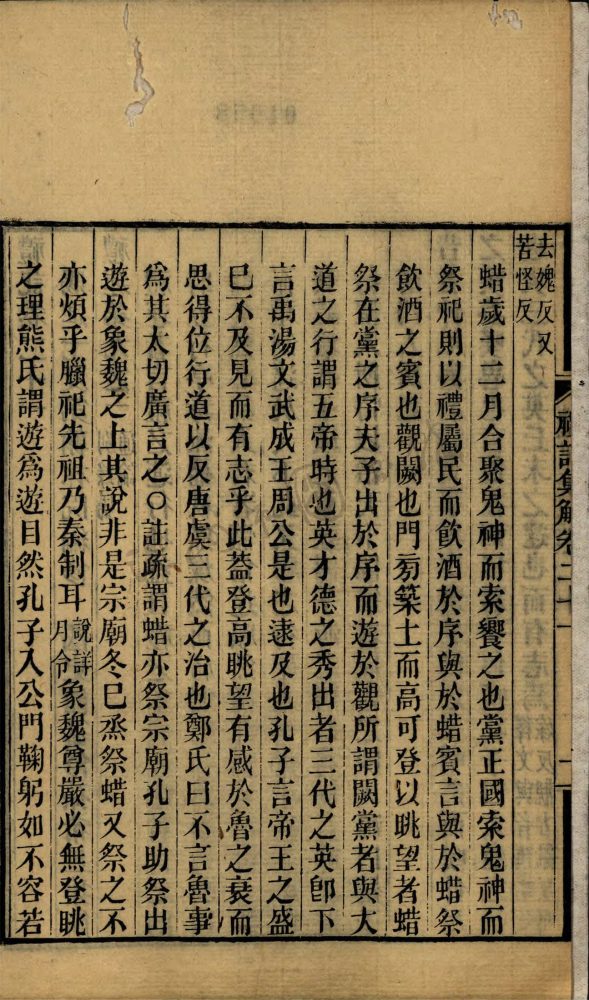 去魏反又
苦怪反
蜡歲十二月合聚鬼神而索饗之也黨正國索鬼神而
祭祀則以禮屬民而飲酒於序與於蜡賓言與於蜡祭
飲酒之賓也觀闕也門旁築土而高可登以眺望者蜡
祭在黨之序夫子出於序而遊於觀所謂闕黨者與大
道之行謂五帝時也英才德之秀出者三代之英卽下
言禹湯文武成王周公是也逮及也孔子言帝王之盛
巳不及見而有志乎此葢登高眺望有感於魯之衰而
思得位行道以反唐虞三代之治也鄭氏曰不言魯事
爲其太切廣言之○註疏謂蜡亦祭宗廟孔子助祭出
遊於象魏之上其說非是宗廟冬巳烝祭蜡又祭之不
亦煩乎臘祀先祖乃秦制耳說詳月令象魏尊嚴必無登眺
之理熊氏謂遊爲遊目然孔子入公門鞠躬如不容若
禮記集解卷二十一
一